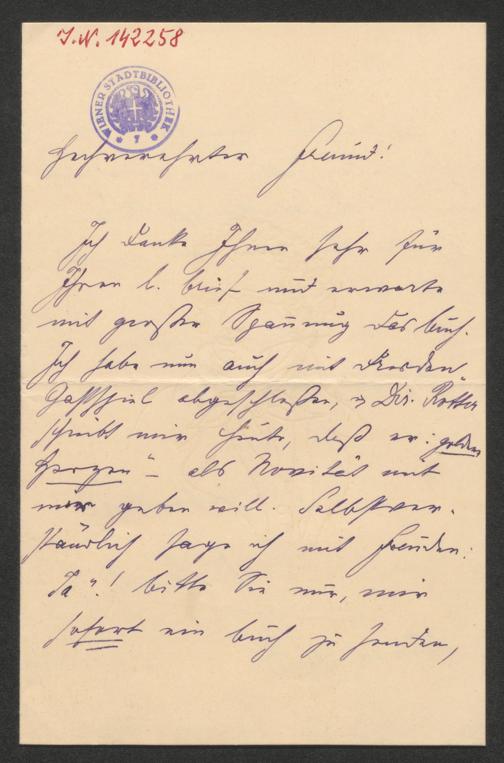 J.N. 142258
WIENER STADTBIBLIOTHEK
7
Hochverehrter Freund!
Ich danke Ihnen sehr für
Ihren l. Brief und erwarte
mit großer Spannung das Buch.
Ich habe nun auch mit Dresden
Gastspiel abgeschloßen, u Dir. Rotter
schreibt mir heute, daß er: "golden
Herzen" als Novität mit
mir geben will. Selbstver-
ständlich sage ich mit Freuden:
Ja"! bitte Sie nur, mir
sofort ein Buch zu senden,